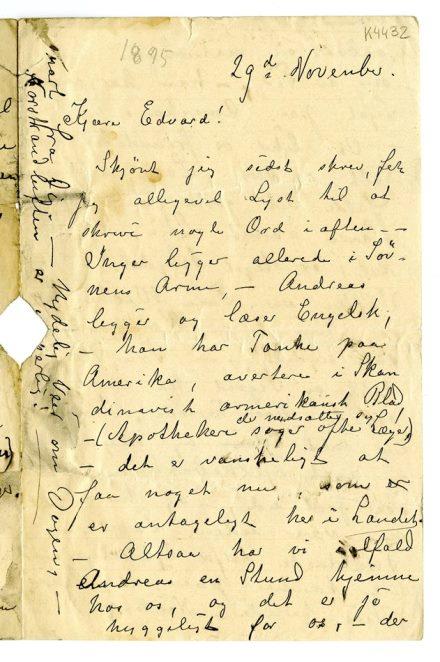 K4432
1895
29d. November.
Kjære Edvard!
Skjønt jeg sidst skrev, fik
jeg allegevel Lyst til at
skrive nogle Ord i aften. -
Inger ligger allerede i Søv-
nens Arme, - Andreas
ligger og læser Engelsk,
- han har Tanke paa
Amerika, avertere i Skan
dinavisk amerikansk Blad
- (Apothekere søger ofte Læger,
de nedsætter sig!)
- det er vanskeligt at
faa noget nu, som
er antageligt her i Landet.
- Altsaa har vi ialfald
Andreas en Stund hjemme
hos os, og det er jo
hyggeligt for os, - der
snart fra Dig - Nydelig Veir om Dagen, -
Nordstrandluften er herlig!